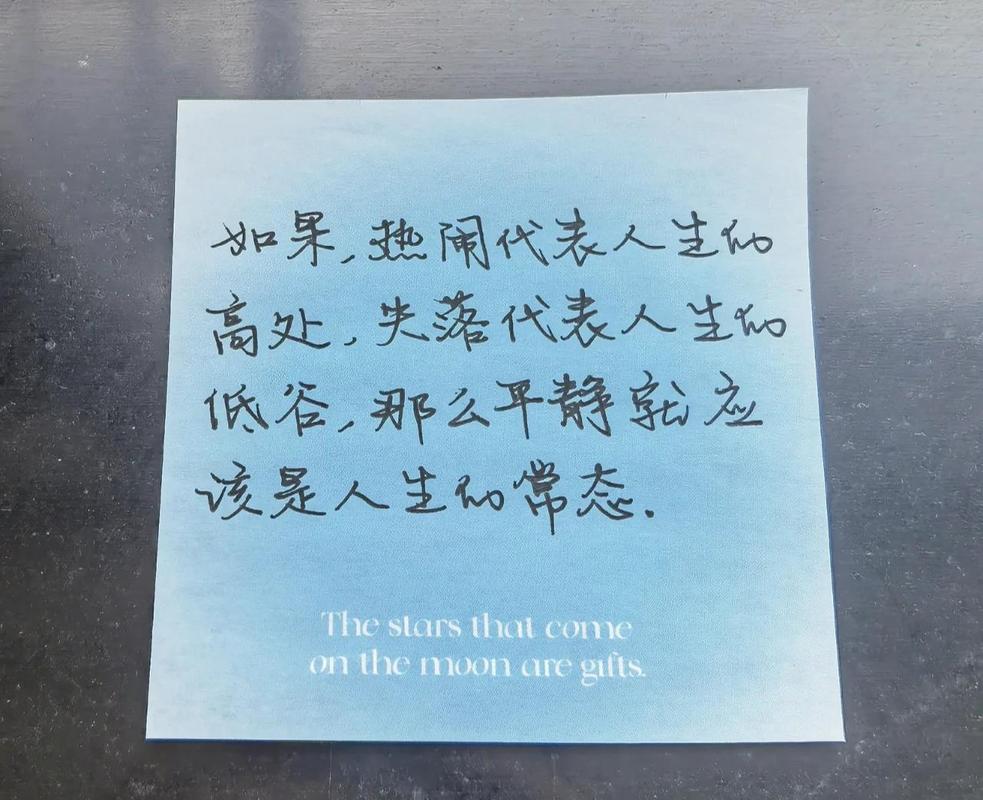 如果,热闹代表人生的
高处,失落代表人生的
低谷,那么平静就应
该是人生的常态.
The stars that come
on the moon are gifts.